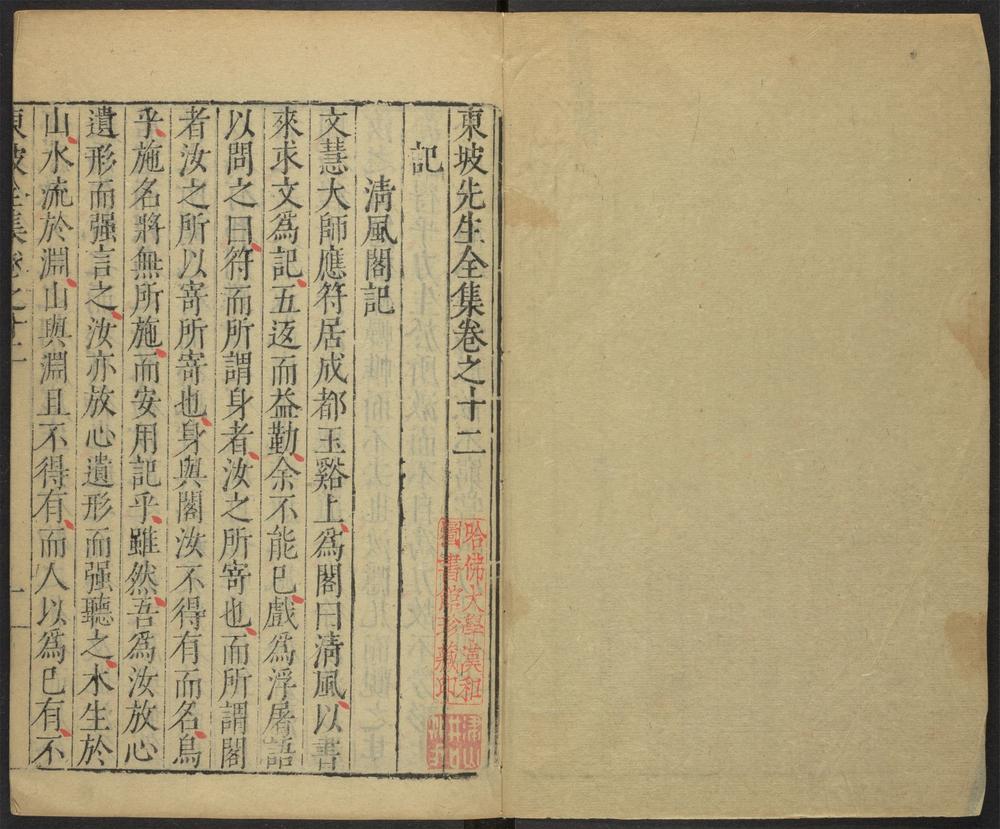 東坡先生全集卷之十二
記
清風閣記
文慧大師應符居成都玉谿上爲閣曰清風以書
來求文爲記五返而益勤余不能已戲爲浮屠語
以問之曰符而所謂身者汝之所寄也而所謂閣
者汝之所以寄所寄也身與閣汝不得有而名烏
乎施名將無所施而安用記乎雖然吾爲汝放心
遺形而强言之汝亦放心遺形而强聽之木生於
山水流於淵山與淵且不得有而人以爲已有不
東坡全集卷之十二
哈佛大學漢和
圖書館珍藏印